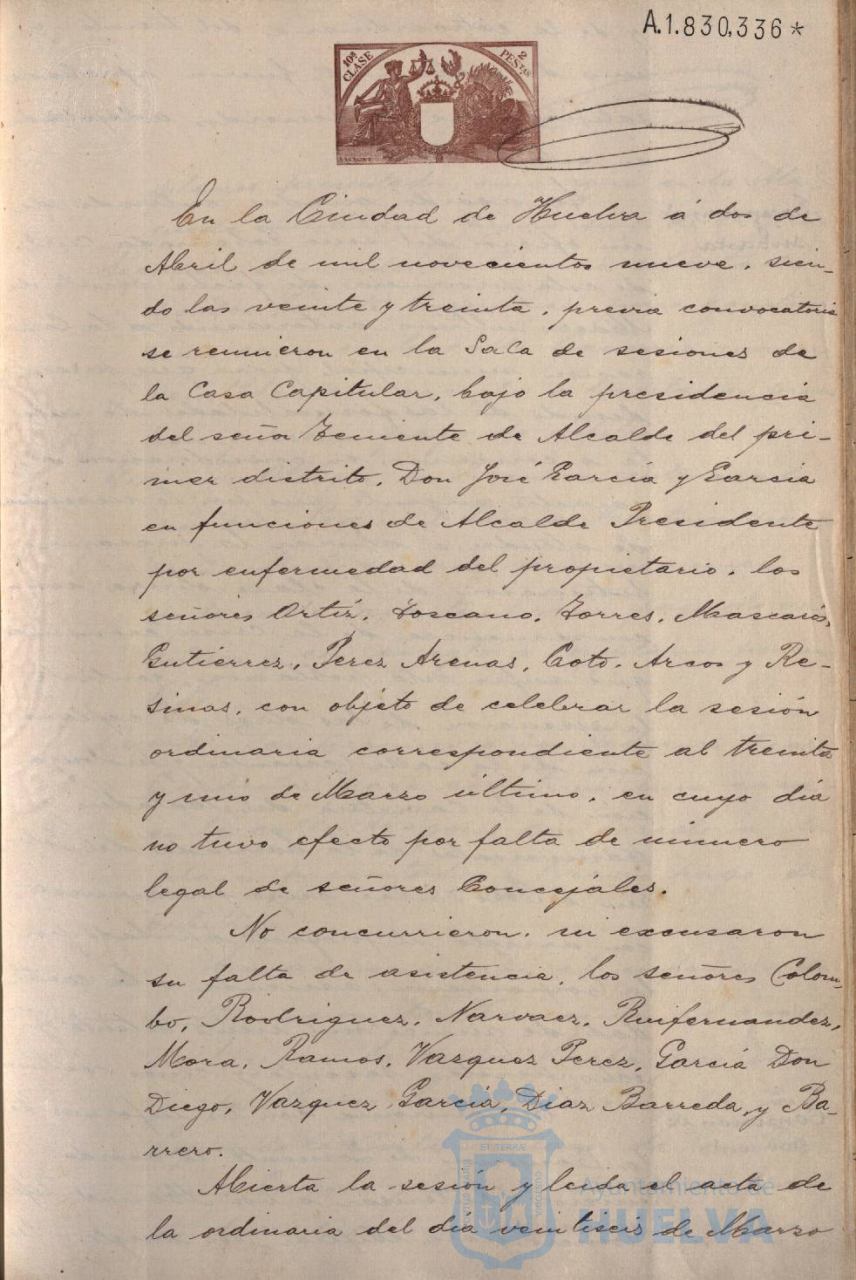 A.1.830,336*
10ª CLASE
2 PESTAS
En la Ciudad de Huelva á dos de
Abril de mil novecientos nueve, sien-
do las veinte y treinta, previa convocatoria
se reunieron en la Sala de sesiones de
la Casa Capitular, bajo la presidencia
del señor Teniente de Alcalde del pri-
mer distrito, Don José García y García
en funciones de Alcalde Presidente
por enfermedad del propietario, los
señores Ortíz, Toscano, Torres, Mascarós,
Gutierrez, Perez Arenas, Coto, Arcos y Re-
sinas, con objeto de celebrar la sesión
ordinaria correspondiente al treinta
y uno de Marzo último, en cuyo día
no tuvo efecto por falta de número
legal de señores Concejales.
No concurrieron, ni excusaron
su falta de asistencia, los señores Colom-
bo, Rodriguez, Narvaez, Ruifernandez,
Mora, Ramos, Vazquez Perez, García Don
Diego, Vazquez García, Diaz Barreda, y Ba-
rrero.
Abierta la sesión y leida el acta de
la ordinaria del día veintiseis de Marzo
Ayuntamiento de
HUELVA